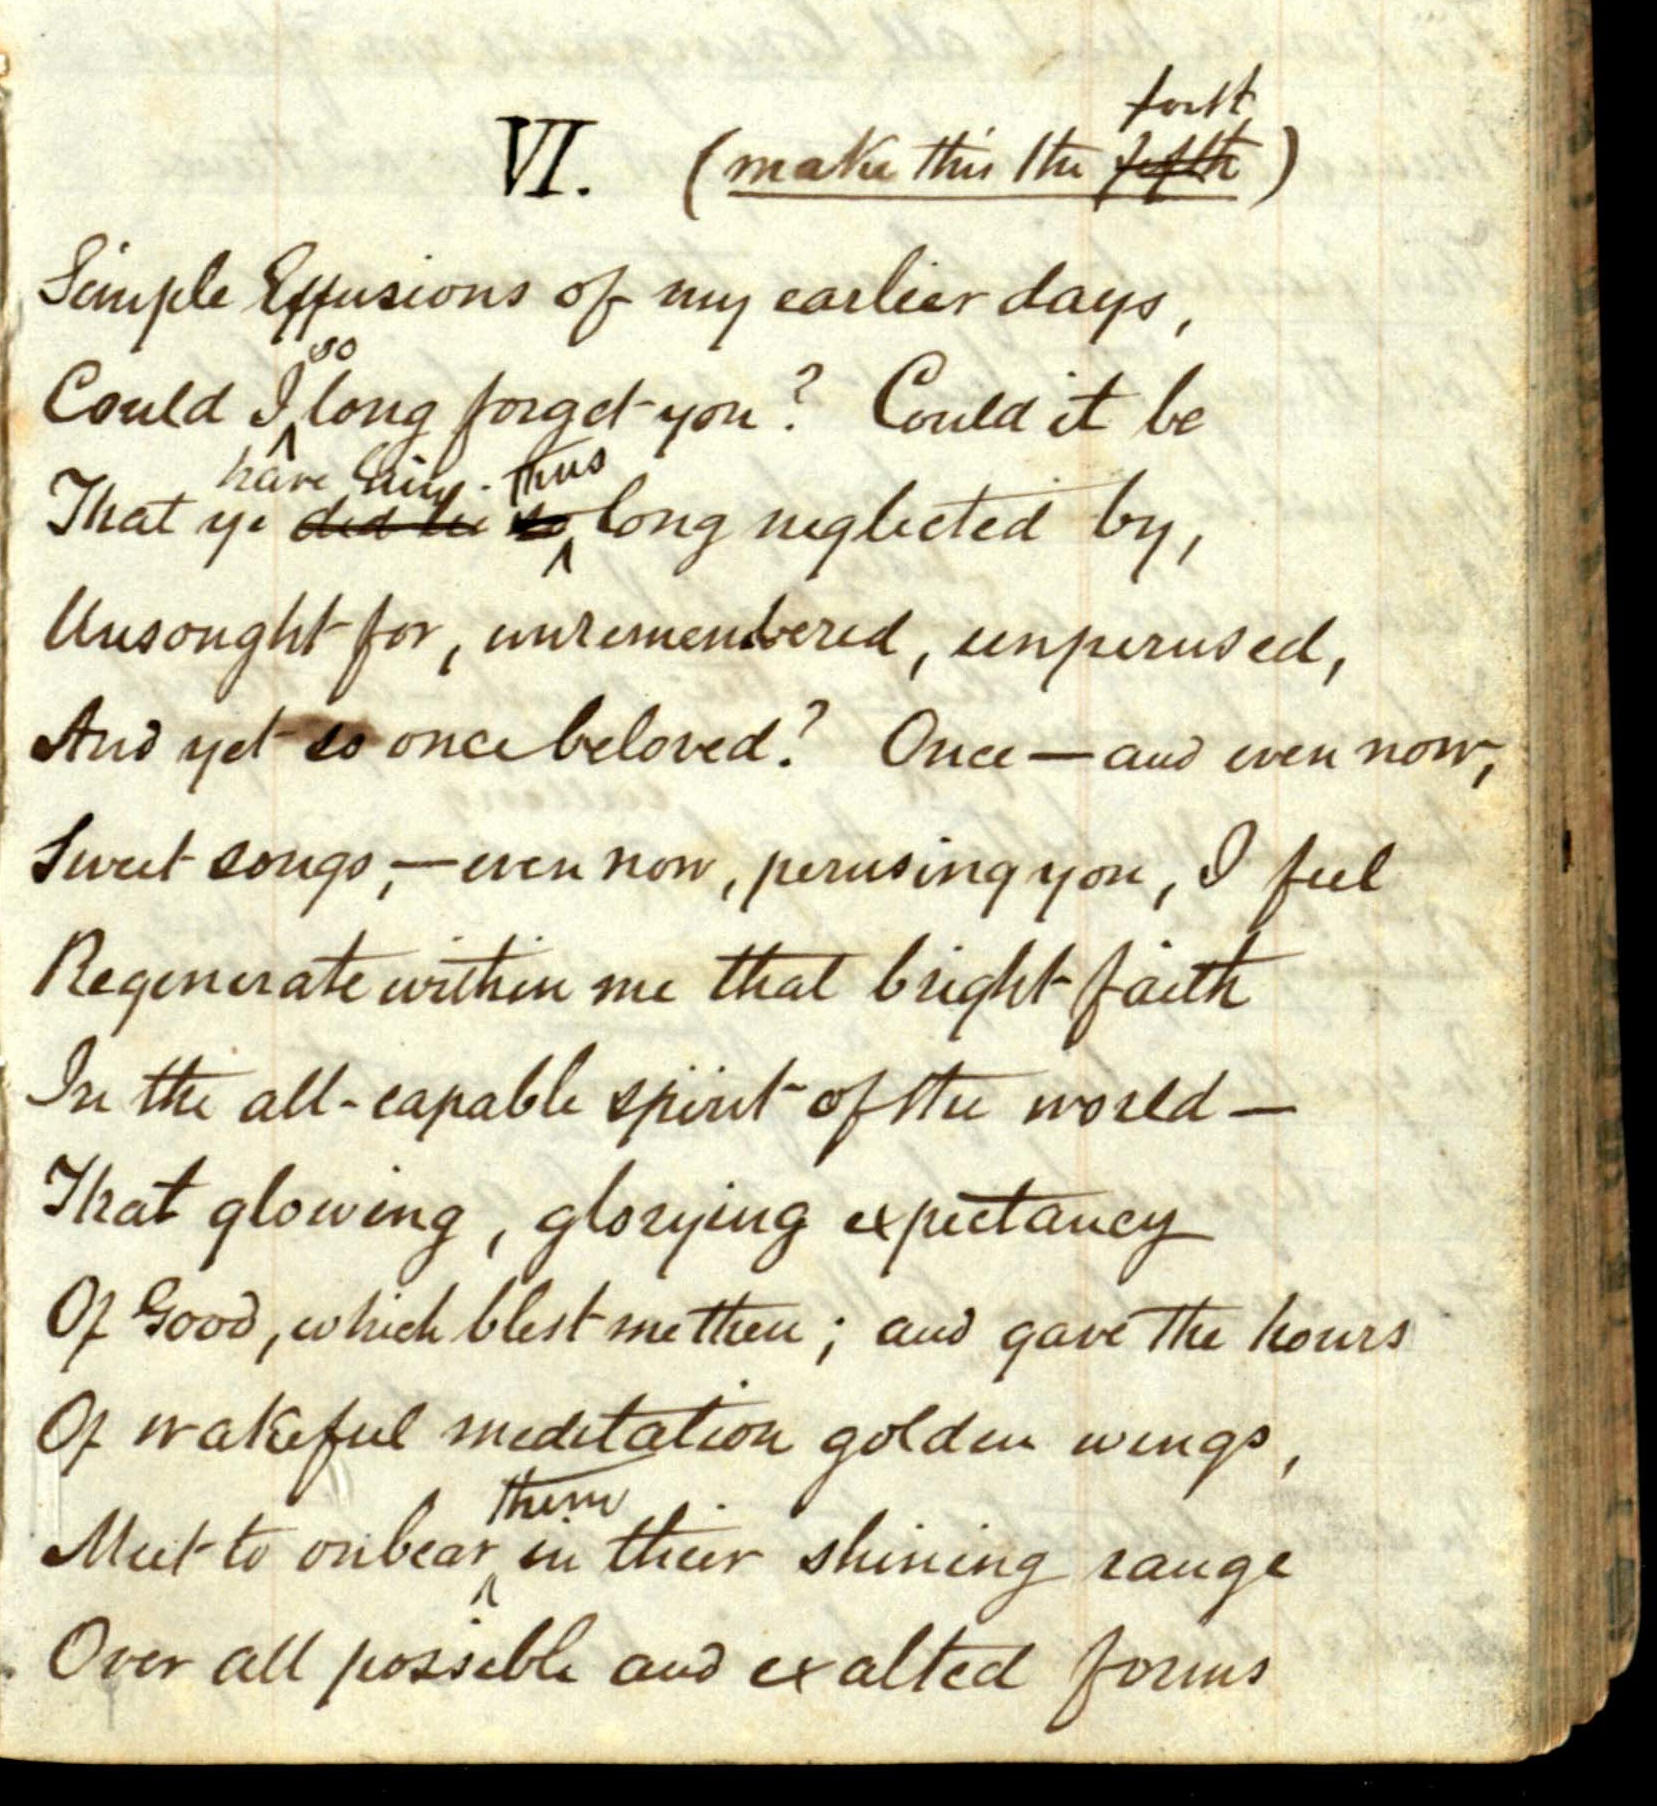 fourth
VI. (make this the fifth)
Simple Effusions of my earlier days,
so
Could I long forget you? Could it be
have lain thus
That ye did lie so long neglected by,
Unsought for, unremembered, unperused,
And yet so once beloved? Once — and even now,
Sweet songs, — even now, perusing you, I feel
Regenerate within me that bright faith
In the all-capable spirit of the world —
That glowing, glorying expectancy
Of Good, which blest me then; and gave the hours
Of wakeful meditation golden wings,
them
Meet to onbear in their shining range
Over all possible and exalted forms